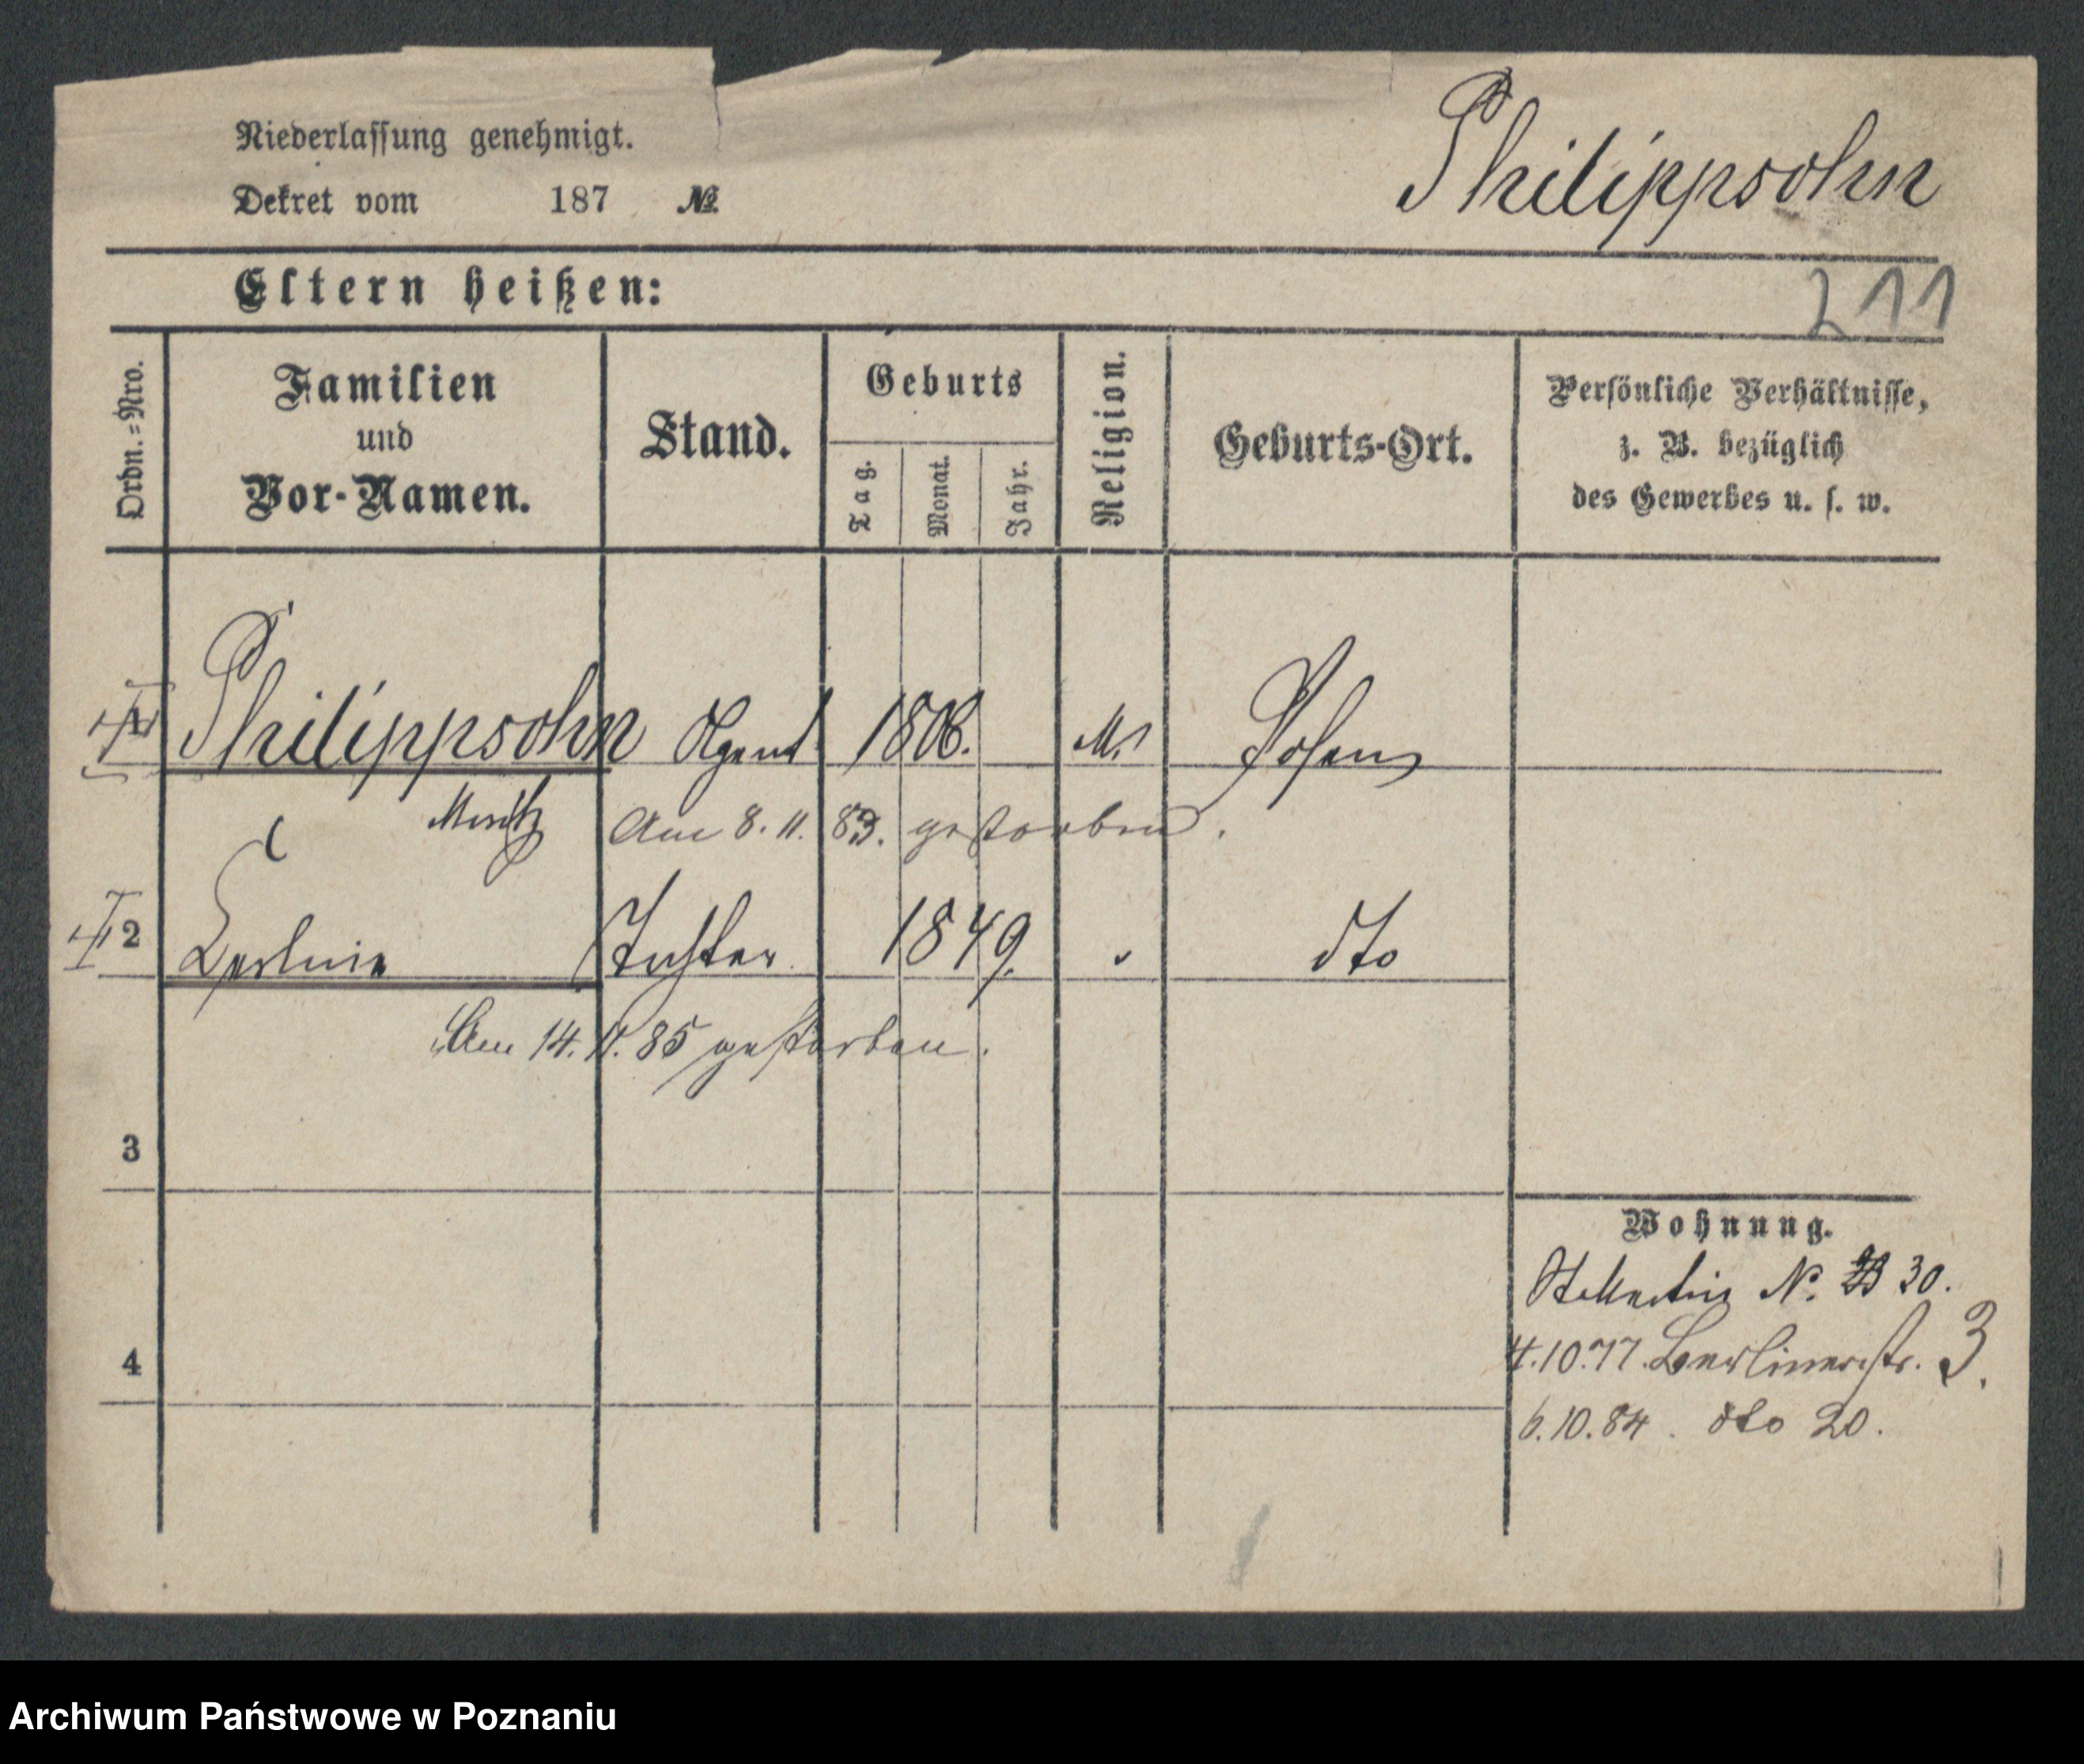 Niederlassung genehmigt.
Dekret vom 187 №
Philippsohn
Eltern heißen:
211
Ordn.=Nro.
Familien
und
Vor-Namen.
Stand.
Geburts
Tag.
Monat.
Jahr.
Religion.
Geburts-Ort.
Persönliche Verhältnisse,
z. B. bezüglich
des Gewerbes u. s. w.
1 Philippsohn Agent 1808. M. Posen
Moritz Am 8. 11. 83. gestorben.
2 Tochter 1849. " dto
Am 14. 11. 85 gestorben.
3
Wohnung.
St. Martin N. 30.
4
4.10.77. Berlinerstr. 3.
6.10.84. dto 20.
Archiwum Państwowe w Poznaniu